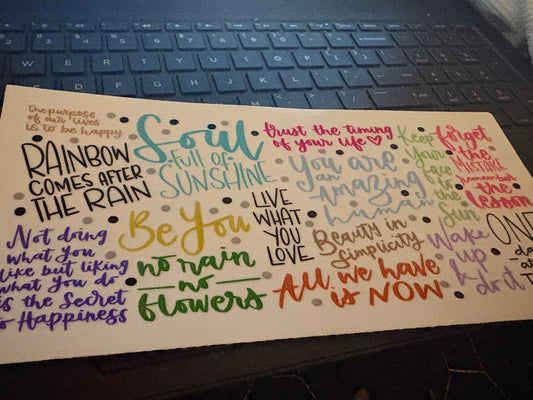 the purpose
of our lives
is to be happy
RAINBOW
COMES AFTER
THE RAIN
Soul
full of
SUNSHINE
trust the timing
of your life
Keep
Your
face
to
the
Sun
forget
the
MISTAKE
remember
the
lesson
You are
an
Amazing
human
Be You
LIVE
WHAT
YOU
LOVE
Beauty in
Simplicity
Not doing
what you
like but liking
what you do
is the Secret
to Happiness
no rain
no
flowers
All we have
is NOW
Wake
up
&
do it
ONE